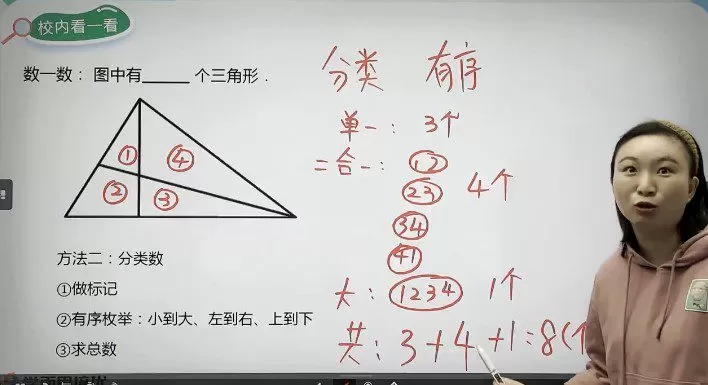 校内看一看
数一数： 图中有_____ 个三角形．
① ④
② ③
方法二：分类数
①做标记
②有序枚举：小到大、左到右、上到下
③求总数
分类 有序
单一： 3个
二合一： ①②
②③ 4个
③④
④①
大： ①②③④ 1个
共：3+4+1=8(个